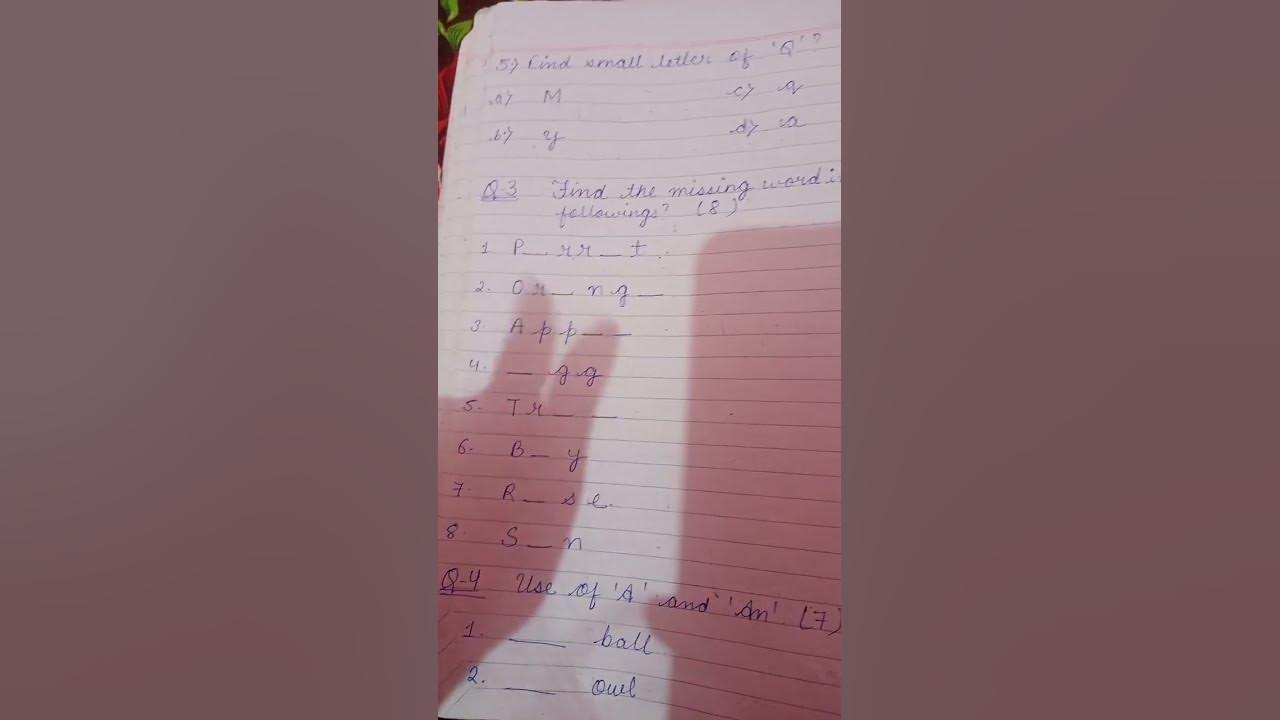 5) Find small letter of 'Q'?
a) M c) q
b) y d) a
Q-3 Find the missing word in
followings? (8)
1 P__rr__t
2. Or__ng__
3. App__ __
4. __gg
5. Tr__ __
6. B__y
7. R__se
8. S__n
Q-4 Use of 'A' and 'An'. (7)
1. ___ ball
2. ___ owl